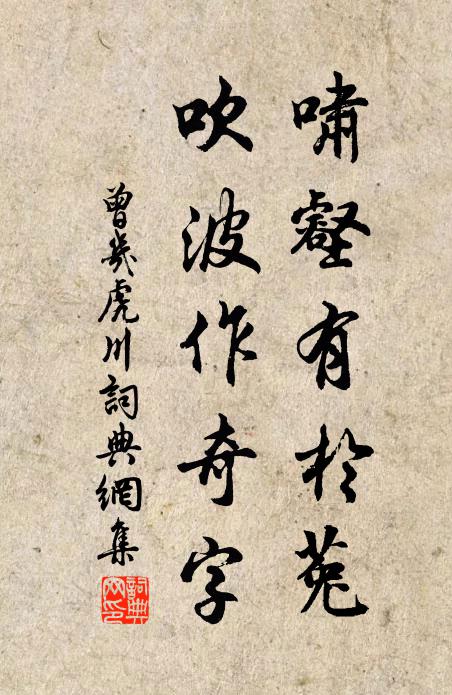 嘯壑有於菟
吹波作奇字
曾幾虎川詞典網集
詞典网印